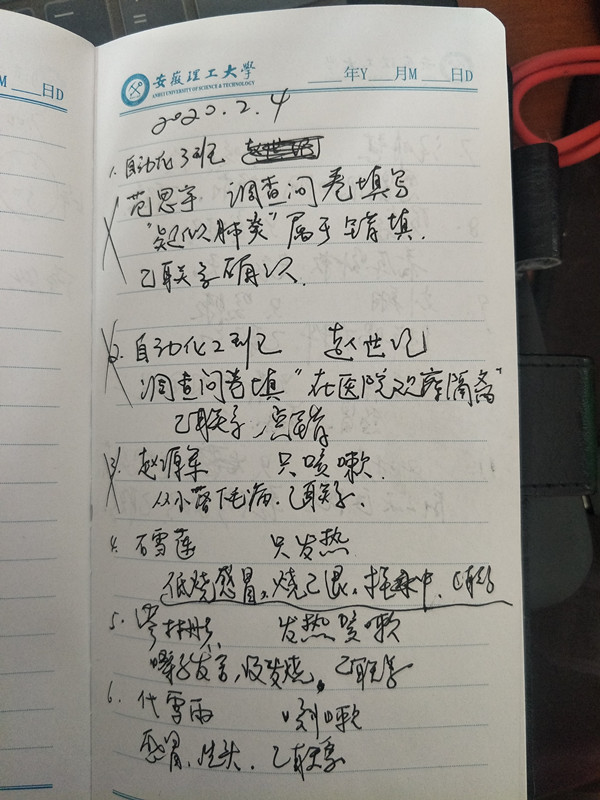 M 日D
安徽理工大学
ANHUI UNIVERSITY OF SCIENCE & TECHNOLOGY
年Y 月M 日D
2020.2.4
1. 自动化3班
范思宇 调查问卷填写
"疑似肺炎"属于错填.
已联系确认.
2. 自动化2班 赵世记
调查问卷填"在医院观察隔离"
已联系,点错
3. 赵源军 只咳嗽.
从小落下毛病.已联系.
4. 石雪莲 只发热
低烧感冒,烧已退. 中.已联系
5. 发热咳嗽
嗓子发言,没发烧.已联系
6. 代雪雨 咳嗽
感冒, 已联系